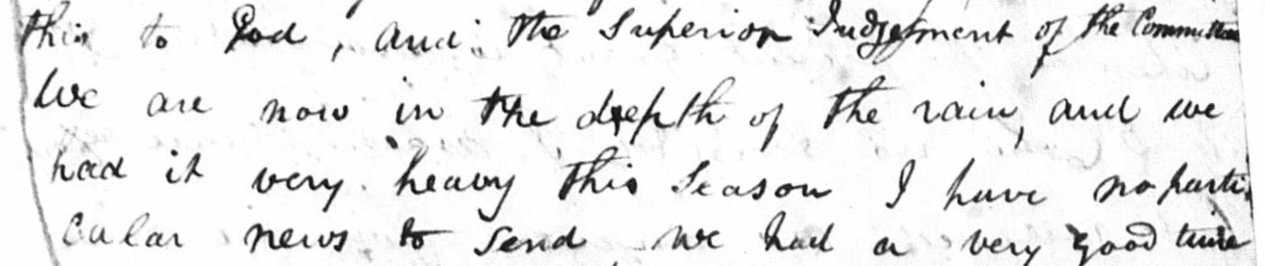 this to God, and the Superior Judgement of the Committee
We are now in the depth of the rain, and we
had it very heavy this Season I have no parti
cular news to send, we had a very good time